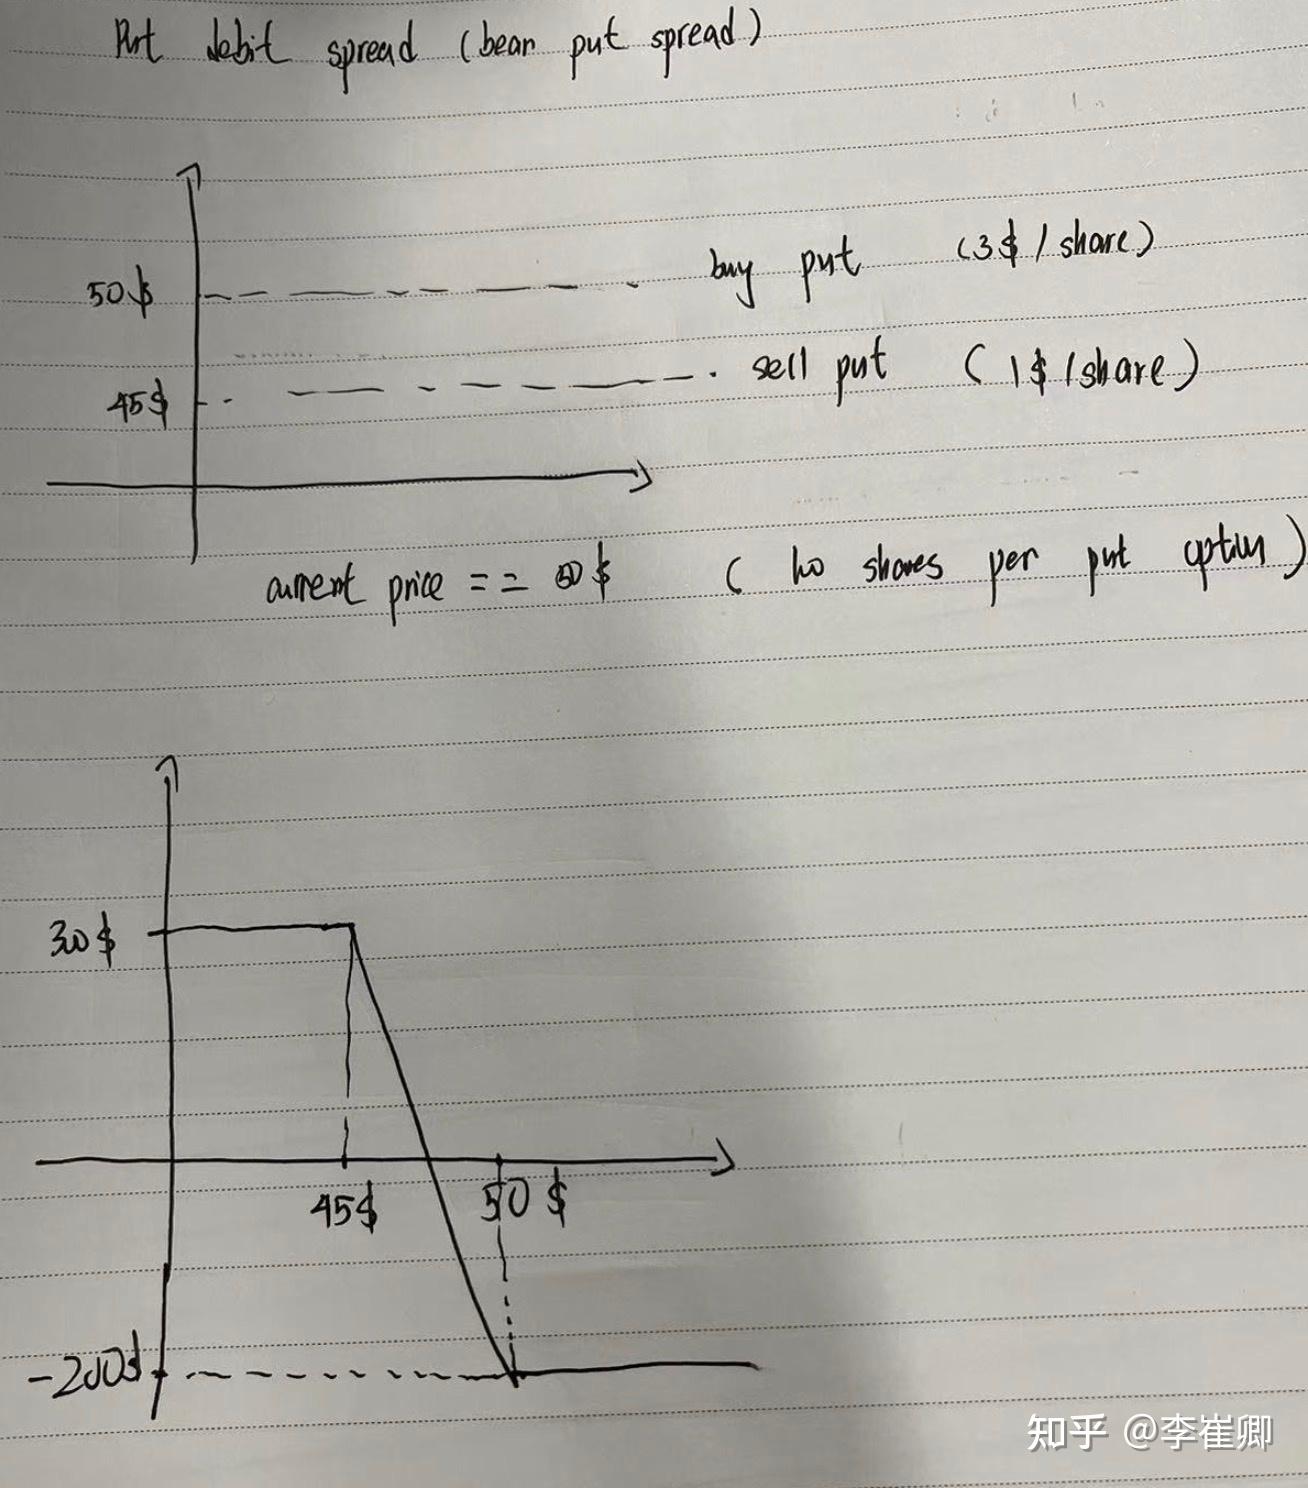 Put debit spread (bear put spread)
50$ buy put (3$/share)
45$ sell put (1$/share)
current price == 50$ (100 shares per put option)
300$
45$ 50$
-200$
知乎 @李崔卿